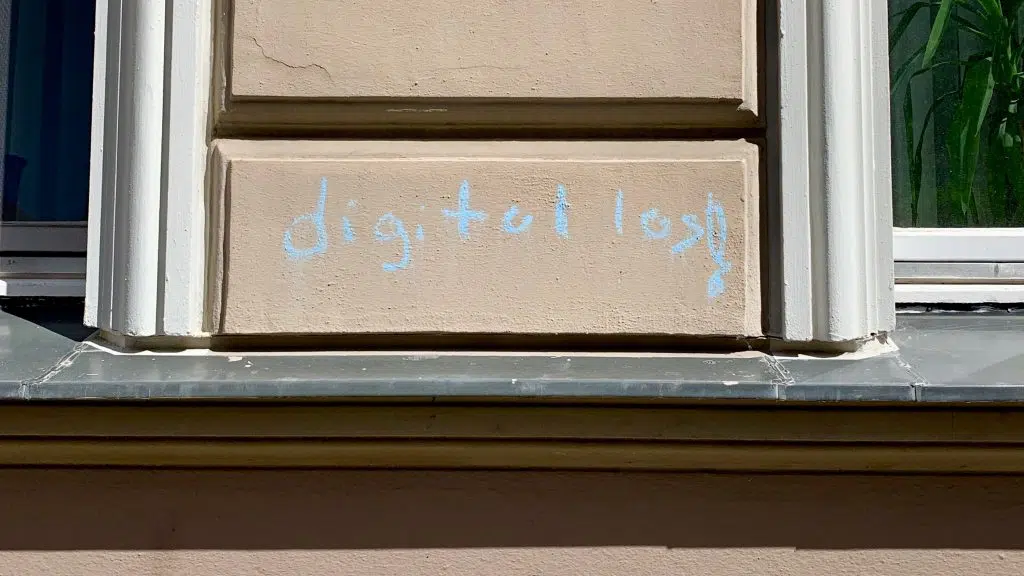 digital los!